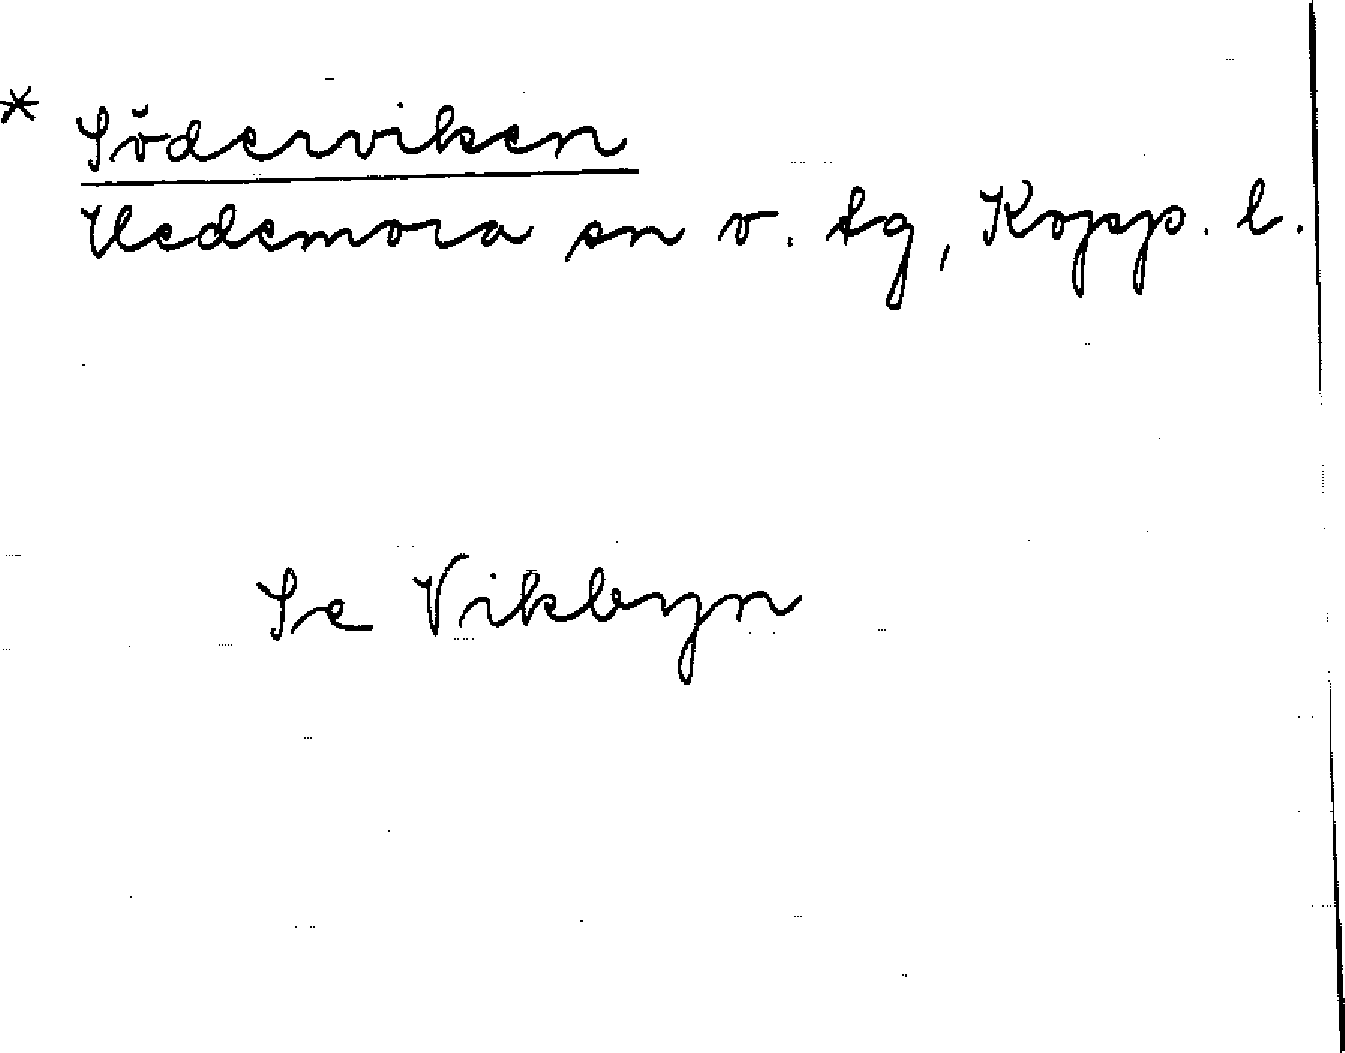 * Söderviken
Hedemora sn v. tg, Kopp. l.
Se Vikbyn